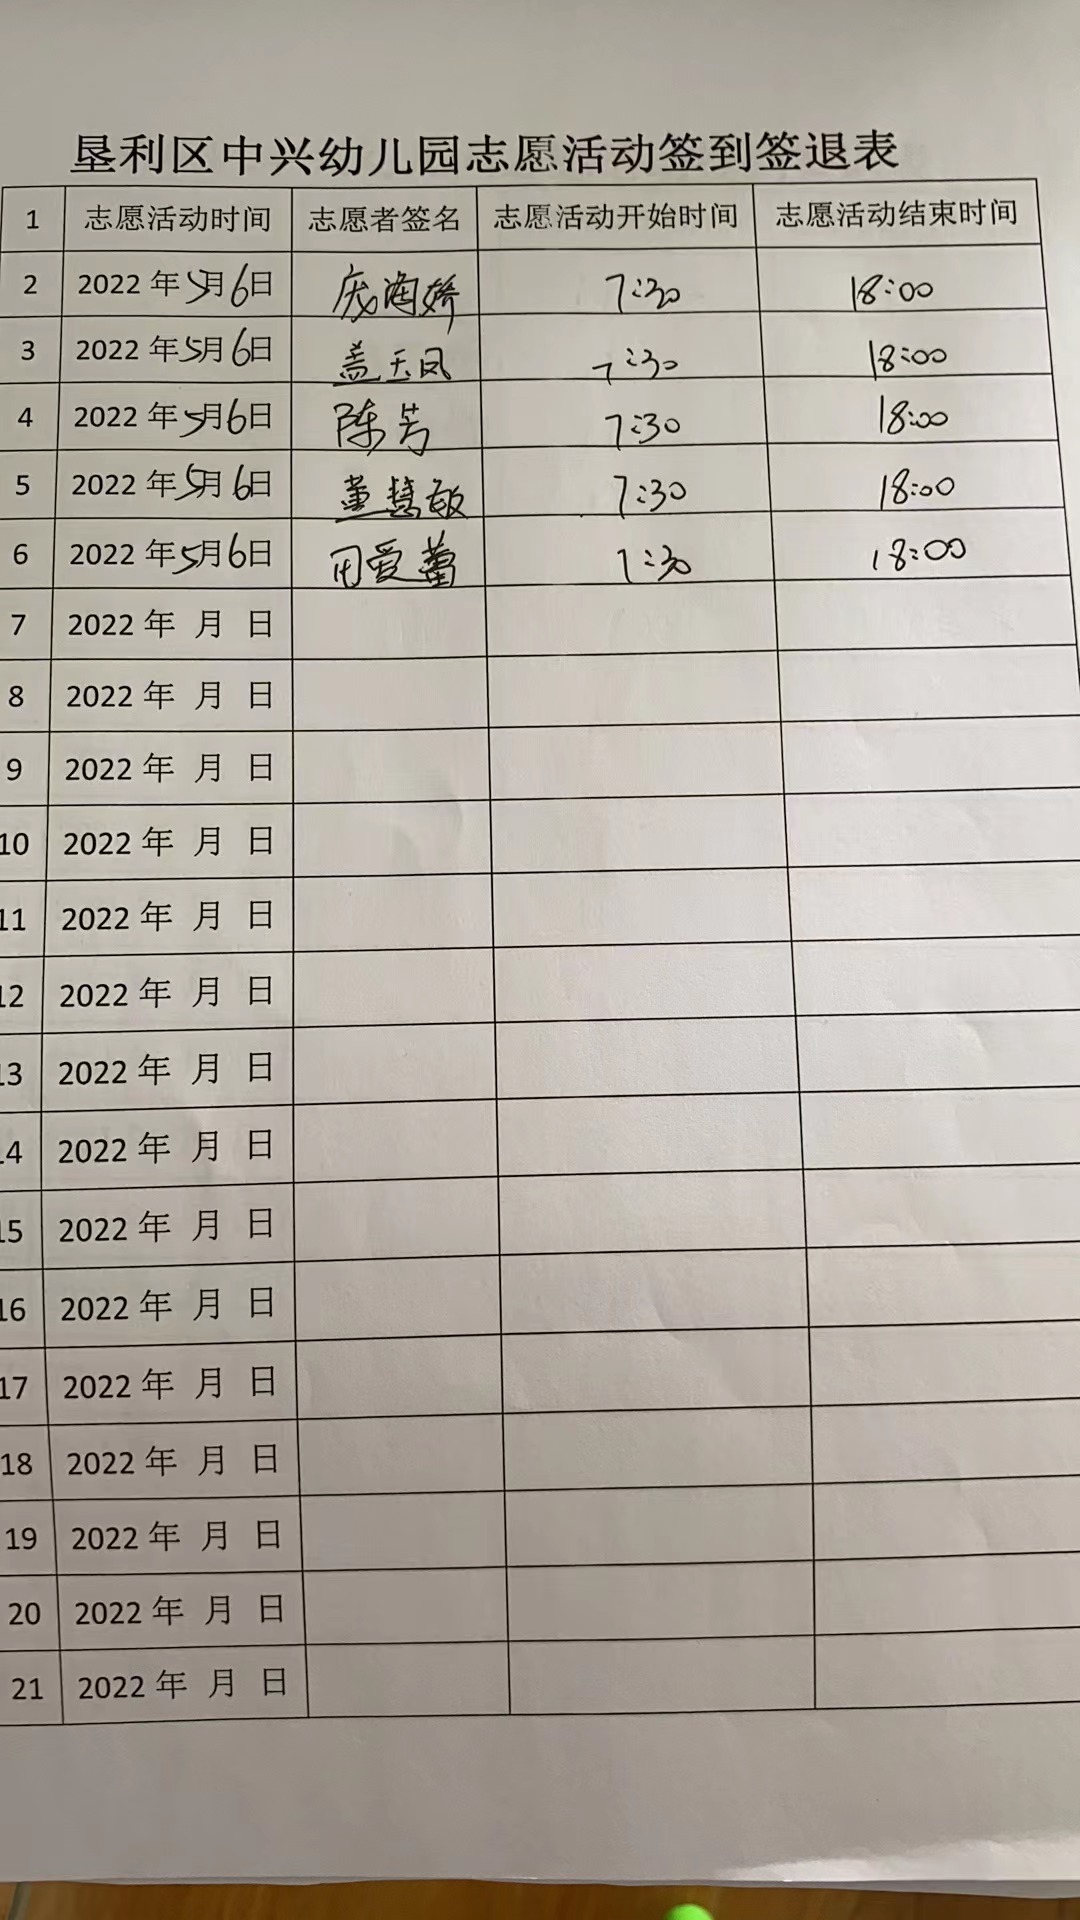 垦利区中兴幼儿园志愿活动签到签退表
1 志愿活动时间 志愿者签名 志愿活动开始时间 志愿活动结束时间
2 2022年5月6日 庞海娇 7:30 18:00
3 2022年5月6日 盖玉凤 7:30 18:00
4 2022年5月6日 陈芳 7:30 18:00
5 2022年5月6日 董慧敏 7:30 18:00
6 2022年5月6日 7:30 18:00
7 2022年 月 日
8 2022年 月 日
9 2022年 月 日
10 2022年 月 日
11 2022年 月 日
12 2022年 月 日
13 2022年 月 日
14 2022年 月 日
15 2022年 月 日
16 2022年 月 日
17 2022年 月 日
18 2022年 月 日
19 2022年 月 日
20 2022年 月 日
21 2022年 月 日